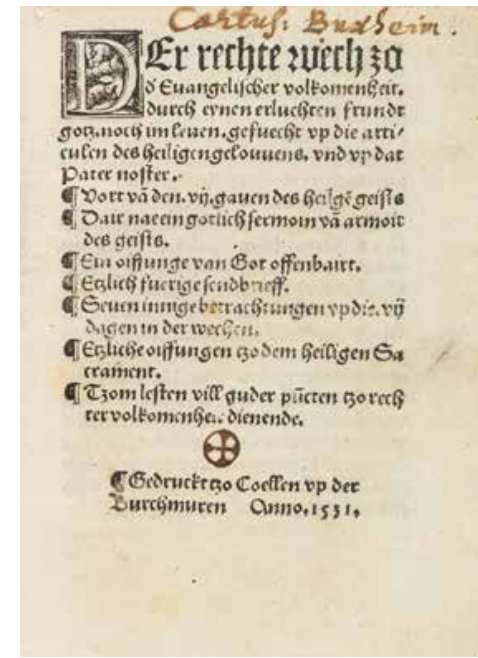 Cartus: Buxheim.
DEr rechte wech zo
d' Euangelischer volkomenheit.
durch eynen erluchten frundt
gotz. noch im leuen. gesuecht vp die arti⸗
culen des heiligen gelouuens. vnd vp dat
Pater noster.
¶ Vort vā den. vij. gauen des heilgē geists
¶ Dair nae ein gotlich sermoin vā armoit
des geists.
¶ Ein oiffunge van Got offenbairt.
¶ Etzlich fuerige sendbrieff.
¶ Seuen innige betrachtungen vp die. vij
dagen in der wechen.
¶ Etzliche oiffungen tzo dem heiligen Sa
crament.
¶ Tzom lesten vill guder pūcten tzo rech
ter volkomenheit dienende.
¶ Gedruckt tzo Coellen vp der
Burchmuren Anno. 1531.